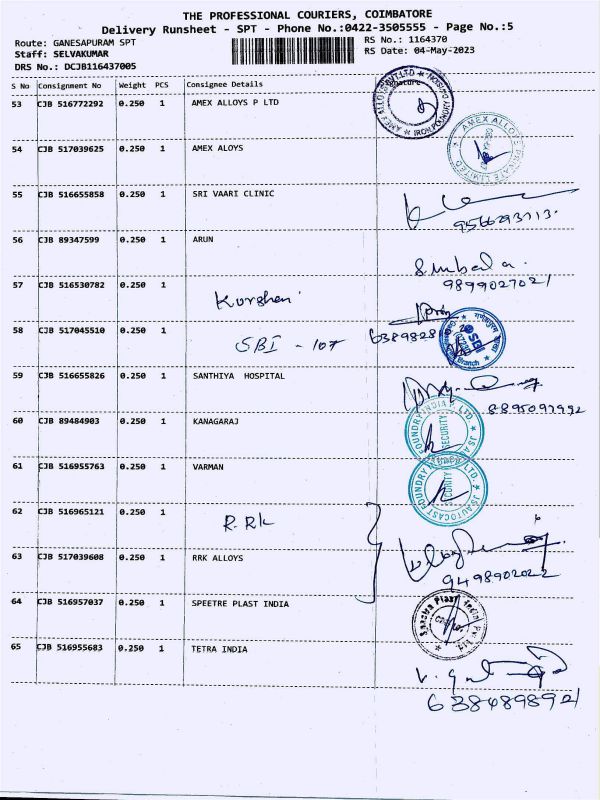 THE PROFESSIONAL COURIERS, COIMBATORE
Delivery Runsheet - SPT - Phone No.:0422-3505555 - Page No.:5
Route: GANESAPURAM SPT
RS No.: 1164370
Staff: SELVAKUMAR
RS Date: 04-May-2023
DRS No.: DCJB116437005
S No Consignment No Weight PCS Consignee Details Signature
53 CJB 516772292 0.250 1 AMEX ALLOYS P LTD
54 CJB 517039625 0.250 1 AMEX ALOYS
AMEX ALLOYS PRIVATE LIMITED
55 CJB 516655858 0.250 1 SRI VAARI CLINIC
9566293713.
56 CJB 89347599 0.250 1 ARUN
9899027021
57 CJB 516530782 0.250 1 Kurshen
58 CJB 517045510 0.250 1 SBI - 107
59 CJB 516655826 0.250 1 SANTHIYA HOSPITAL
8895097992
60 CJB 89484903 0.250 1 KANAGARAJ
61 CJB 516955763 0.250 1 VARMAN
JS AUTOCAST FOUNDRY INDIA P. LTD.
SECURITY
62 CJB 516965121 0.250 1 R.RK
63 CJB 517039608 0.250 1 RRK ALLOYS
9498902022
64 CJB 516957037 0.250 1 SPEETRE PLAST INDIA
65 CJB 516955683 0.250 1 TETRA INDIA
6384898921